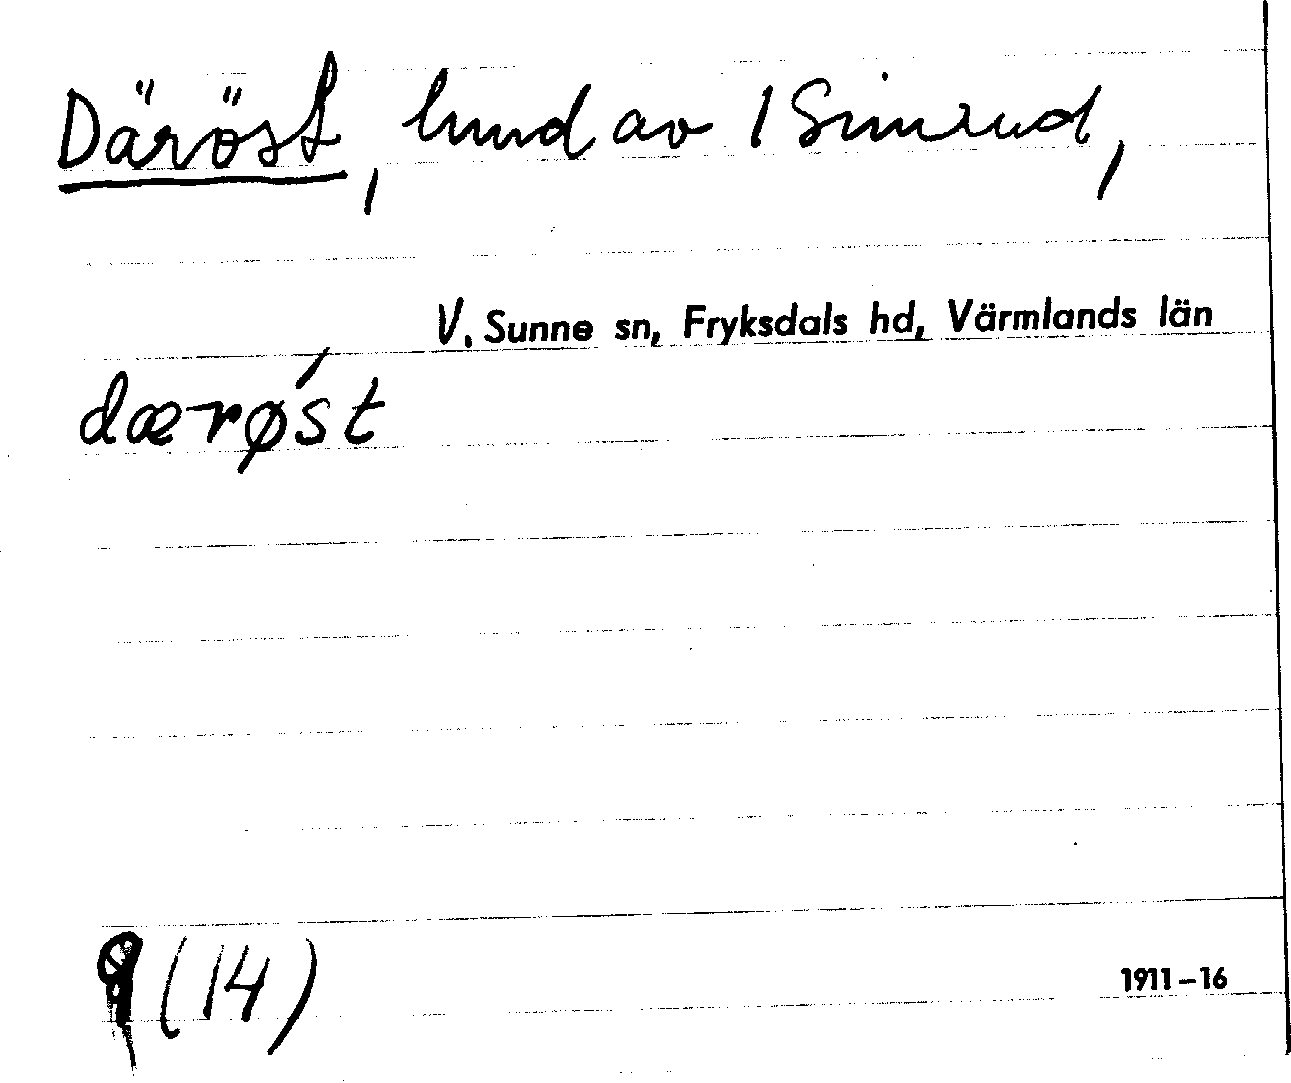 Däröst, lund av 1 Simrud,
V. Sunne sn, Fryksdals hd, Värmlands län
dærøst
(14)
1911–16